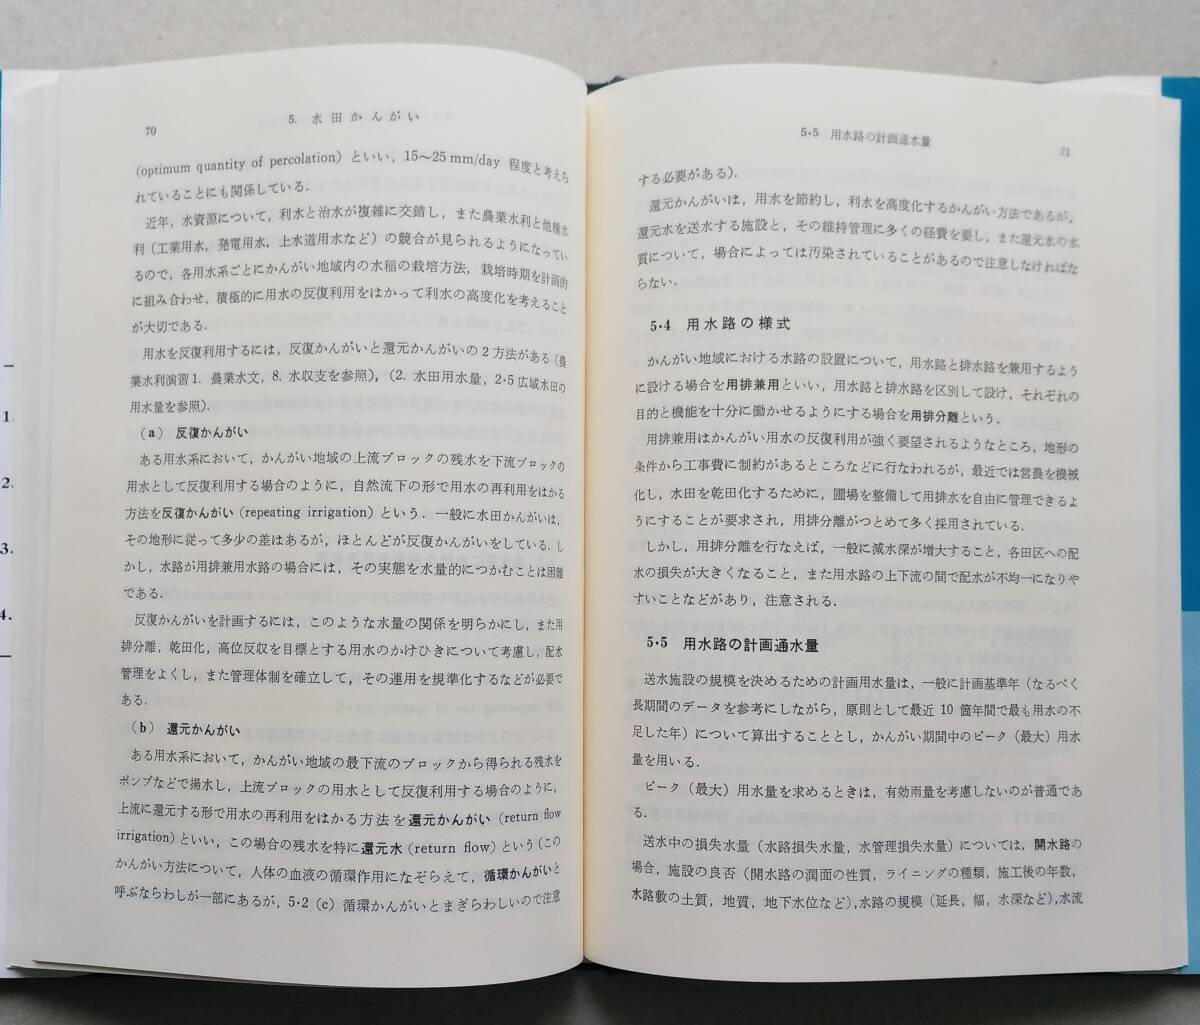 70
5. 水田かんがい
(optimum quantity of percolation) といい，15～25 mm/day 程度と考えら
れていることにも関係している．
近年，水資源について，利水と治水が複雑に交錯し，また農業水利と他種水
利（工業用水，発電用水，上水道用水など）の競合が見られるようになってい
るので，各用水系ごとにかんがい地域内の水稲の栽培方法，栽培時期を計画的
に組み合わせ，積極的に用水の反復利用をはかって利水の高度化を考えること
が大切である．
用水を反復利用するには，反復かんがいと還元かんがいの2方法がある（農
業水利演習1．農業水文，8．水収支を参照），（2．水田用水量，2・5 広域水田の
用水量を参照）．
（a） 反復かんがい
ある用水系において，かんがい地域の上流ブロックの残水を下流ブロックの
用水として反復利用する場合のように，自然流下の形で用水の再利用をはかる
方法を反復かんがい (repeating irrigation) という．一般に水田かんがいは，
その地形に従って多少の差はあるが，ほとんどが反復かんがいをしている．し
かし，水路が用排兼用水路の場合には，その実態を水量的につかむことは困難
である．
反復かんがいを計画するには，このような水量の関係を明らかにし，また用
排分離，乾田化，高位反収を目標とする用水のかけひきについて考慮し，配水
管理をよくし，また管理体制を確立して，その運用を規準化するなどが必要で
ある．
（b） 還元かんがい
ある用水系において，かんがい地域の最下流のブロックから得られる残水を
ポンプなどで揚水し，上流ブロックの用水として反復利用する場合のように，
上流に還元する形で用水の再利用をはかる方法を還元かんがい (return flow
irrigation) といい，この場合の残水を特に還元水 (return flow) という（この
かんがい方法について，人体の血液の循環作用になぞらえて，循環かんがいと
呼ぶならわしが一部にあるが，5・2（c）循環かんがいとまぎらわしいので注意
5・5 用水路の計画通水量
71
する必要がある）．
還元かんがいは，用水を節約し，利水を高度化するかんがい方法であるが，
還元水を送水する施設と，その維持管理に多くの経費を要し，また還元水の水
質について，場合によっては汚染されていることがあるので注意しなければな
らない．
5・4 用水路の様式
かんがい地域における水路の設置について，用水路と排水路を兼用するよう
に設ける場合を用排兼用といい，用水路と排水路を区別して設け，それぞれの
目的と機能を十分に働かせるようにする場合を用排分離という．
用排兼用はかんがい用水の反復利用が強く要望されるようなところ，地形の
条件から工事費に制約があるところなどに行なわれるが，最近では営農を機械
化し，水田を乾田化するために，圃場を整備して用排水を自由に管理できるよ
うにすることが要求され，用排分離がつとめて多く採用されている．
しかし，用排分離を行なえば，一般に減水深が増大すること，各田区への配
水の損失が大きくなること，また用水路の上下流の間で配水が不均一になりや
すいことなどがあり，注意される．
5・5 用水路の計画通水量
送水施設の規模を決めるための計画用水量は，一般に計画基準年（なるべく
長期間のデータを参考にしながら，原則として最近 10 箇年間で最も用水の不
足した年）について算出することとし，かんがい期間中のピーク（最大）用水
量を用いる．
ピーク（最大）用水量を求めるときは，有効雨量を考慮しないのが普通であ
る．
送水中の損失水量（水路損失水量，水管理損失水量）については，開水路の
場合，施設の良否（開水路の潤面の性質，ライニングの種類，施工後の年数，
水路敷の土質，地質，地下水位など），水路の規模（延長，幅，水深など），水流
1.
2.
3.
4.